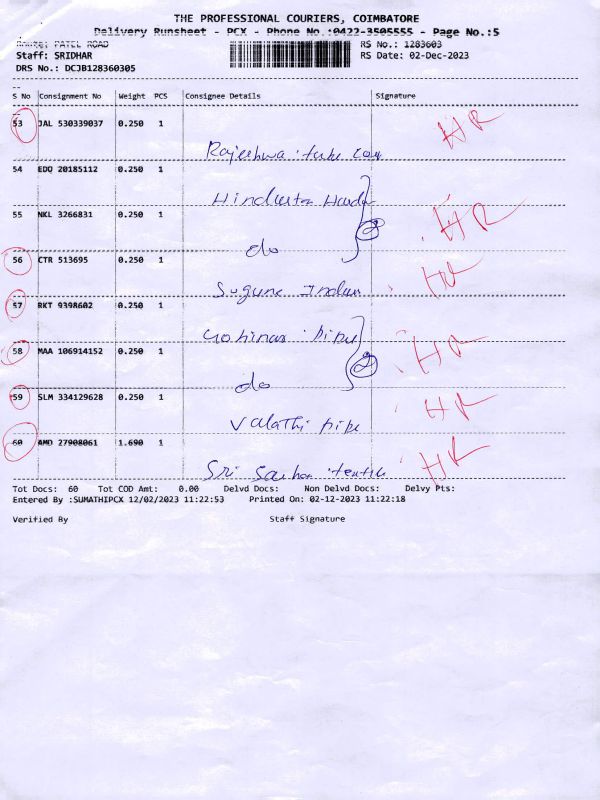 THE PROFESSIONAL COURIERS, COIMBATORE
Delivery Runsheet - PCX - Phone No.:0422-3505555 - Page No.:5
Route: PATEL ROAD RS No.: 1283603
Staff: SRIDHAR RS Date: 02-Dec-2023
DRS No.: DCJB128360305
S No Consignment No Weight PCS Consignee Details Signature
53 JAL 530339037 0.250 1 HR
Rajeshwa tube
54 EDQ 20185112 0.250 1
Hindusta
55 NKL 3266831 0.250 1 HR
do 2
56 CTR 513695 0.250 1 HR
Sugune Indan
57 RKT 9398602 0.250 1
pipe
58 MAA 106914152 0.250 1 HR
do 2
59 SLM 334129628 0.250 1 HR
Valathi pipe
60 AMD 27908061 1.690 1 HR
Sri textile
Tot Docs: 60 Tot COD Amt: 0.00 Delvd Docs: Non Delvd Docs: Delvy Pts:
Entered By :SUMATHIPCX 12/02/2023 11:22:53 Printed On: 02-12-2023 11:22:18
Verified By Staff Signature